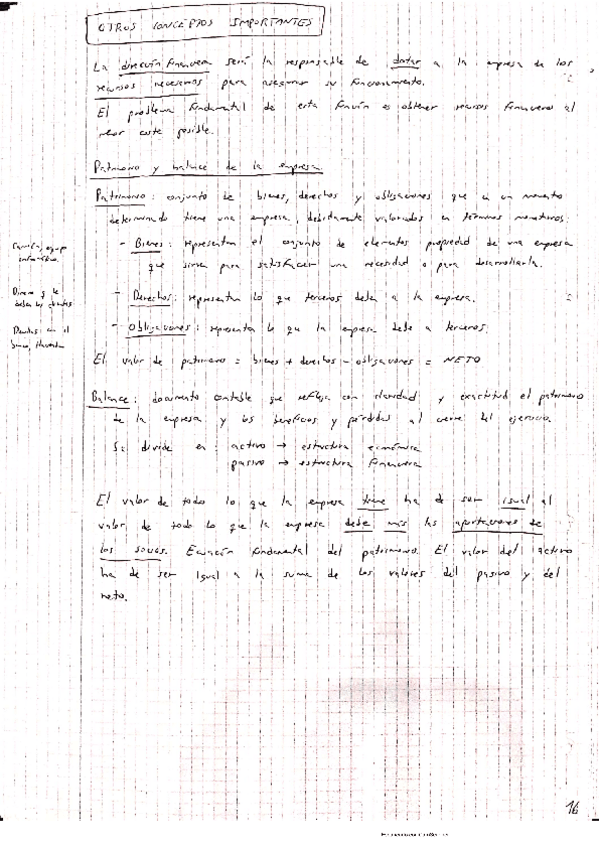 OTROS CONCEPTOS IMPORTANTES
La dirección financiera será la responsable de dotar a la empresa de los
recursos necesarios para asegurar su funcionamiento.
El problema fundamental de esta función es obtener recursos financieros al
menor coste posible.
Patrimonio y balance de la empresa
Patrimonio: conjunto de bienes, derechos y obligaciones que en un momento
determinado tiene una empresa, debidamente valorados en términos monetarios.
Camión, equipo
informático.
- Bienes: representan el conjunto de elementos propiedad de una empresa
que sirven para satisfacer una necesidad o para desarrollarla.
Dinero q le
deben los clientes
- Derechos: representan lo que terceros deben a la empresa.
Deudas con el
banco, Hacienda
- Obligaciones: representa lo que la empresa debe a terceros.
El valor de patrimonio = bienes + derechos - obligaciones = NETO
Balance: documento contable que refleja con claridad y exactitud el patrimonio
de la empresa y los beneficios y pérdidas al cierre del ejercicio.
Se divide en: activo → estructura económica
pasivo → estructura financiera
El valor de todo lo que la empresa tiene ha de ser igual al
valor de todo lo que la empresa debe más las aportaciones de
los socios. Ecuación fundamental del patrimonio. El valor del activo
ha de ser igual a la suma de los valores del pasivo y del
neto.
16